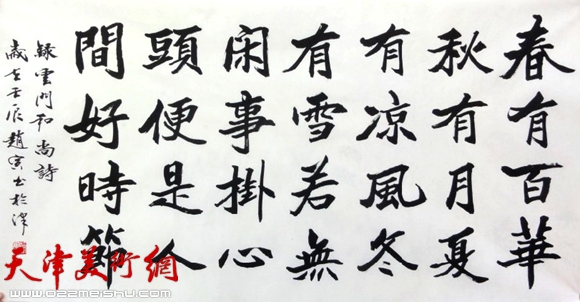 春有百華
秋有月夏
有凉風冬
有雪若無
闲事掛心
頭便是人
間好時節
録雲門和尚詩
歲在壬辰趙寅書於津
天津美術網
www.022meishu.com